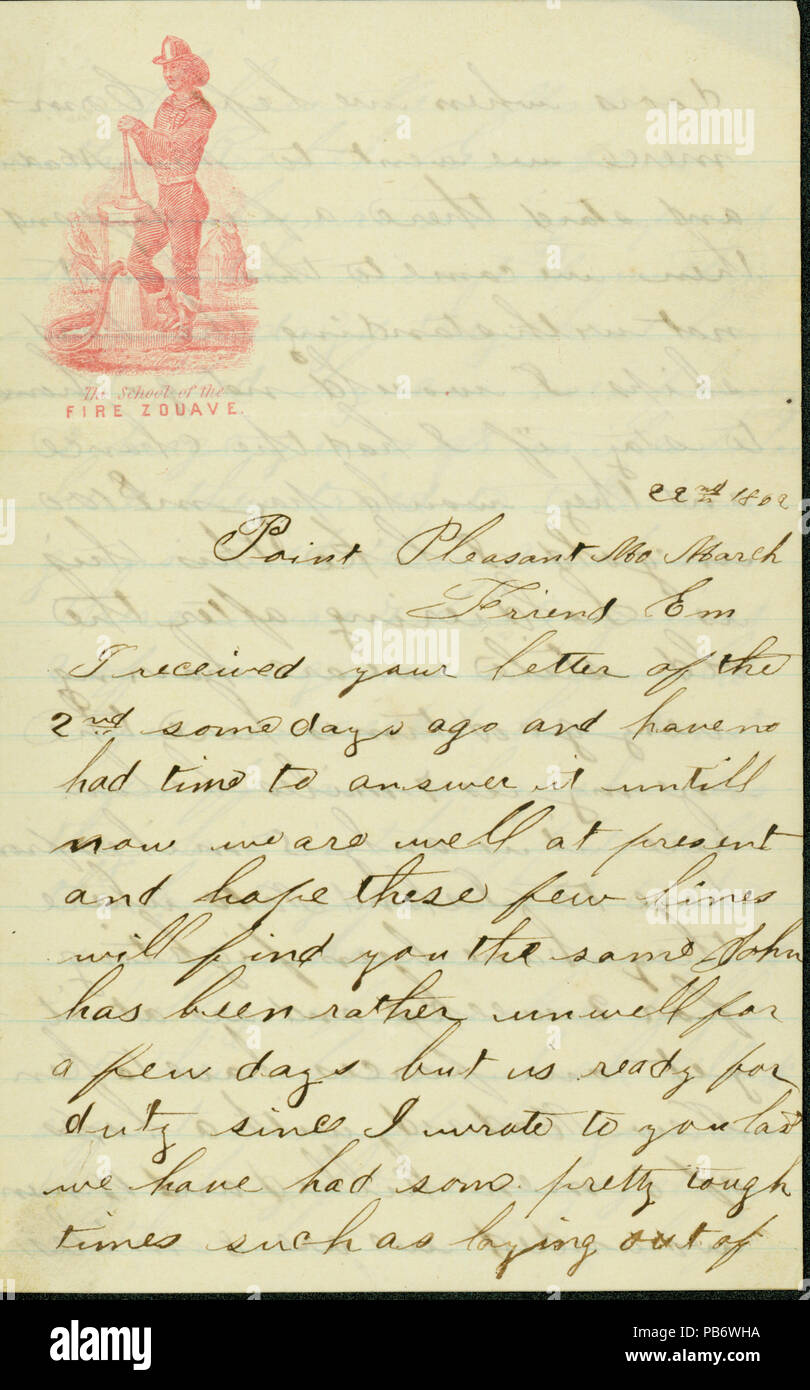 The School of the
FIRE ZOUAVE.
22nd 1862
Point Pleasant Mo March
Friend Em
I received your letter of the
2nd some days ago and have no
had time to answer it untill
now we are well at present
and hope these few lines
will find you the same John
has been rather unwell for
a few days but is ready for
duty since I wrote to you last
we have had some pretty tough
times such as laying out of
alamy stock photo
PB6WHA
www.alamy.com